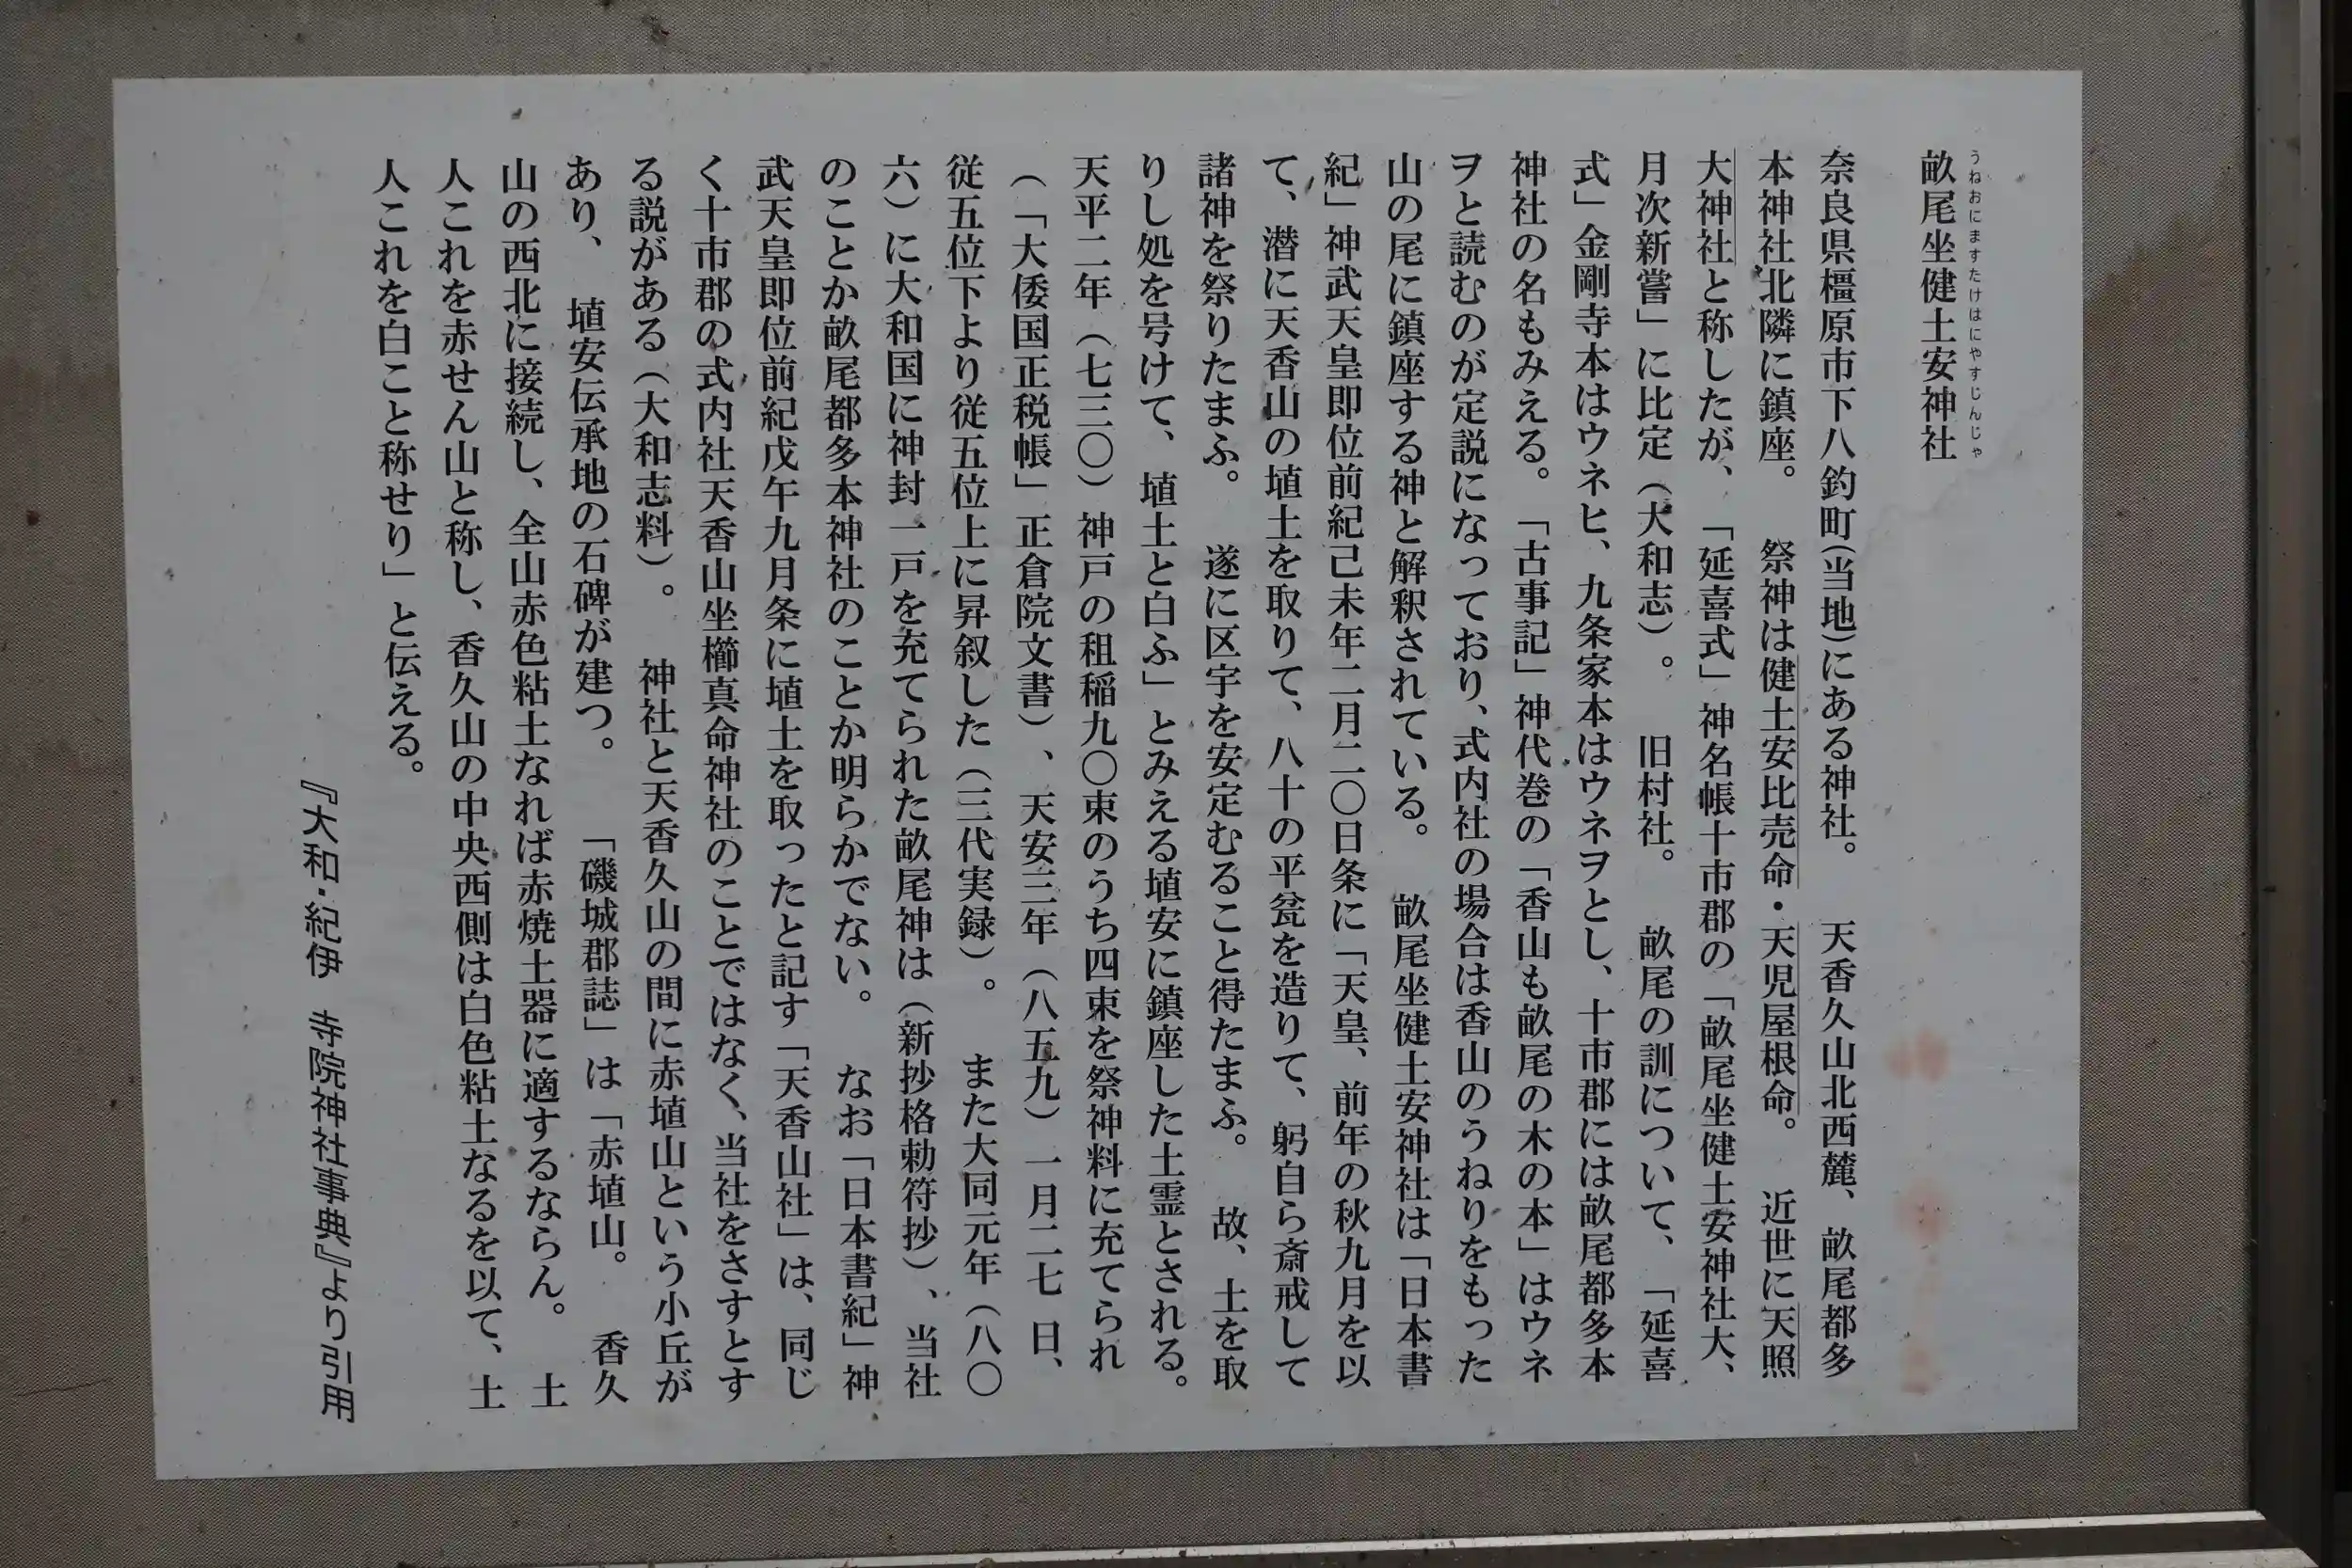 うねおにますたけはにやすじんじゃ
畝尾坐健土安神社
奈良県橿原市下八釣町(当地)にある神社。 天香久山北西麓、畝尾都多
本神社北隣に鎮座。 祭神は健土安比売命・天児屋根命。 近世に天照
大神社と称したが、「延喜式」神名帳十市郡の「畝尾坐健土安神社大、
月次新嘗」に比定（大和志）。 旧村社。 畝尾の訓について、「延喜
式」金剛寺本はウネヒ、九条家本はウネヲとし、十市郡には畝尾都多本
神社の名もみえる。「古事記」神代巻の「香山も畝尾の木の本」はウネ
ヲと読むのが定説になっており、式内社の場合は香山のうねりをもった
山の尾に鎮座する神と解釈されている。 畝尾坐健土安神社は「日本書
紀」神武天皇即位前紀己未年二月二〇日条に「天皇、前年の秋九月を以
て、潜に天香山の埴土を取りて、八十の平瓮を造りて、躬自ら斎戒して
諸神を祭りたまふ。 遂に区宇を安定むること得たまふ。 故、土を取
りし処を号けて、埴土と白ふ」とみえる埴安に鎮座した土霊とされる。
天平二年（七三〇）神戸の租稲九〇束のうち四束を祭神料に充てられ
（「大倭国正税帳」正倉院文書）、天安三年（八五九）一月二七日、
従五位下より従五位上に昇叙した（三代実録）。 また大同元年（八〇
六）に大和国に神封一戸を充てられた畝尾神は（新抄格勅符抄）、当社
のことか畝尾都多本神社のことか明らかでない。 なお「日本書紀」神
武天皇即位前紀戊午九月条に埴土を取ったと記す「天香山社」は、同じ
く十市郡の式内社天香山坐櫛真命神社のことではなく、当社をさすとす
る説がある（大和志料）。 神社と天香久山の間に赤埴山という小丘が
あり、 埴安伝承地の石碑が建つ。 「磯城郡誌」は「赤埴山。 香久
山の西北に接続し、全山赤色粘土なれば赤焼土器に適するならん。 土
人これを赤せん山と称し、香久山の中央西側は白色粘土なるを以て、土
人これを白こと称せり」と伝える。
『大和・紀伊 寺院神社事典』より引用